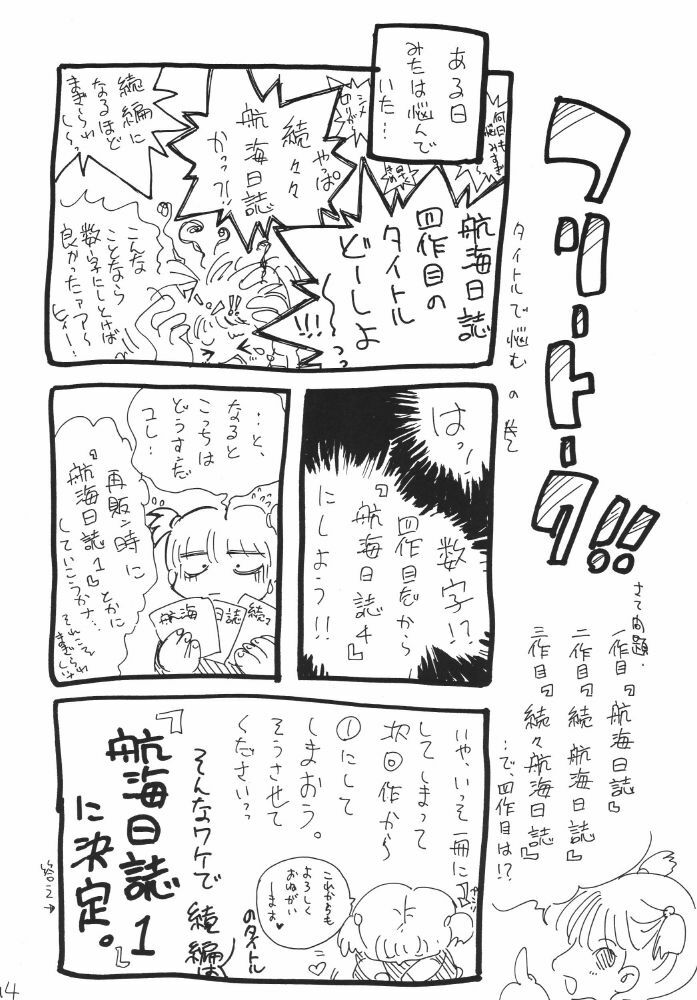 フリートーク!!
タイトルで悩むの巻
さて問題・
一作目『航海日誌』
二作目『続 航海日誌』
三作目『続々航海日誌』
…で、四作目は!?
ある日
みたは悩んで
いた…
航海日誌
四作目の
タイトル
どーしよ
〜っっ
!!!
何日も
悩みすぎ
シメ
切りが
やっぱ
続々々
航海日誌
かっ?!
続編に
なるほど
まぎらわ
しい〜
こんな
ことなら
数字にしとけば
良かったァァ〜
ヒィー!
はっ!
数字!?
四作目だから
『航海日誌4』
にしよう!!
…と、
なると
こっちは
どうすんだ
コレ…
航海
日誌
続
再販ン時に
『航海日誌1』とかに
していこうかナ…
それこそ
まぎらわしいナ
いや、いっそ一冊に
してしまって
次回作から
①にして
しまおう。
そうさせて
くださいっっ
そんなワケで 続編は
のタイトル
『航海日誌1』
に決定。
答え→
これからも
よろしく
おねがい
しまーす♥
14